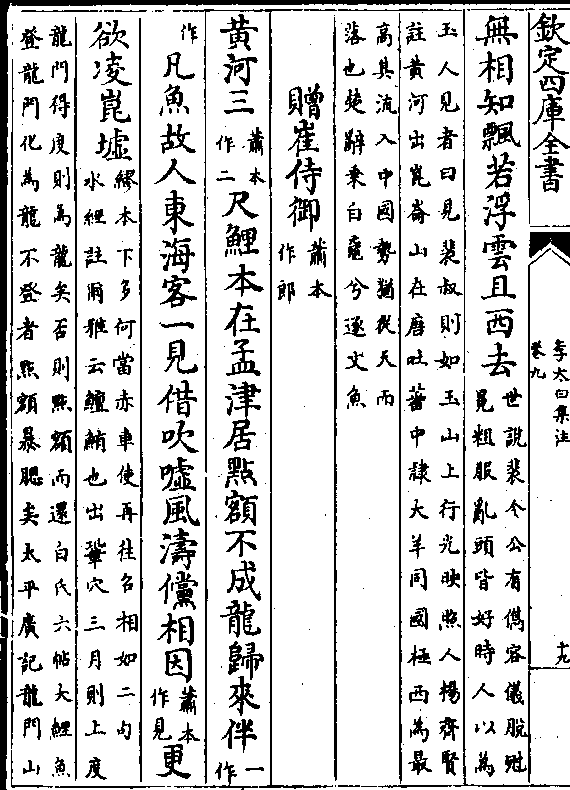 欽定四庫全書
李太白集注
卷九
十九
無相知飄若浮雲且西去世說裴令公有儁容儀脫冠
冕粗服亂頭皆好時人以為
玉人見者曰見裴叔則如玉山上行光映照人楊齊賢
註黃河出崑崙山在唐吐蕃中隷大羊同國極西為最
高其流入中國勢猶從天而
落也楚辭乗白黿兮逐文魚
贈崔侍御蕭本
作郎
黃河三蕭本
作二尺鯉本在孟津居點額不成龍歸來伴一
作
作凡魚故人東海客一見借吹噓風濤儻相因蕭本
作見更
欲凌崑墟繆本下多何當赤車使再往召相如二句
水經註爾雅云鱣鮪也出鞏穴三月則上度
龍門得度則為龍矣否則點額而還白氏六帖大鯉魚
登龍門化為龍不登者點額暴腮矣太平廣記龍門山